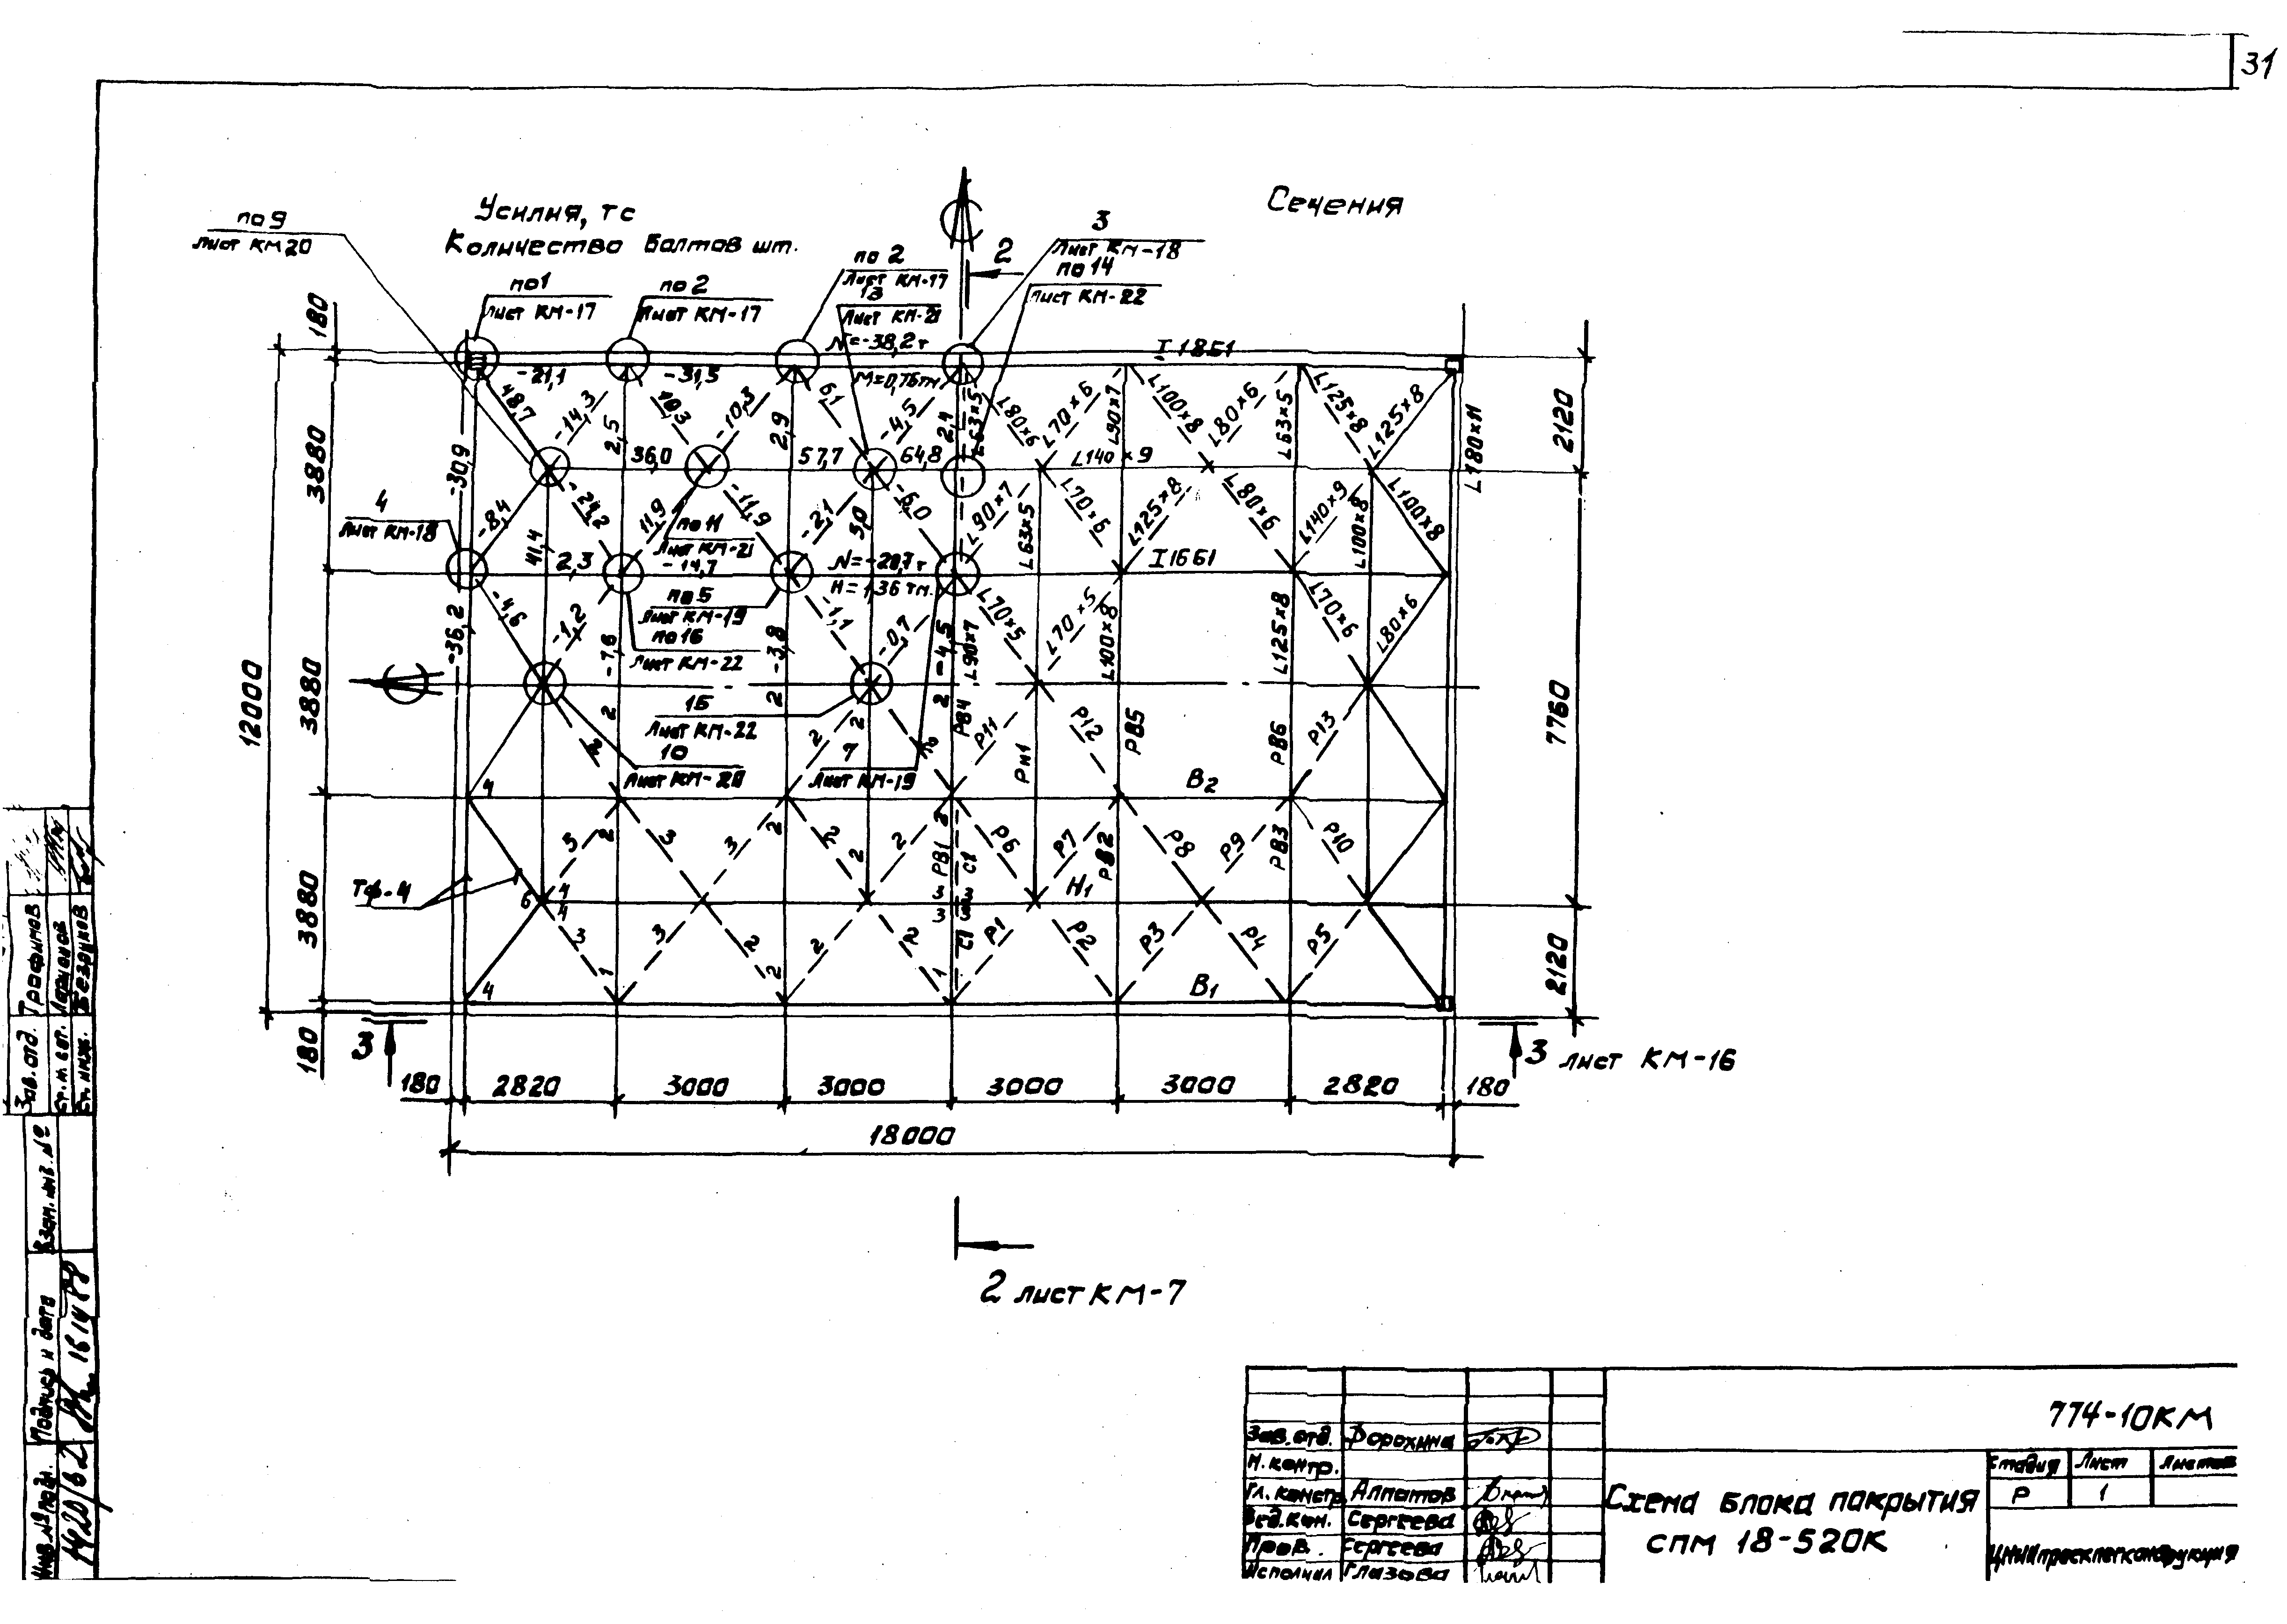 31
Усилия, тс
Количество болтов шт.
Сечения
по 9
Лист КМ 20
по 1
Лист КМ-17
по 2
Лист КМ-17
по 2
Лист КМ-17
13
Лист КМ-21
N=-38,2 т
М=0,76тм
3
Лист КМ-18
по 14
Лист КМ-22
2
I 18Б1
180
3880
3880
3880
180
12000
2120
7760
2120
-21,1
-31,5
48,7
-14,3
2,5
10,3
-10,3
2,9
6,1
-4,5
2,4
L63×5
L80×6
L70×6
L90×7
L100×8
L80×6
L63×5
L125×8
L125×8
L180×11
-30,9
36,0
57,7
64,8
L140×9
4
Лист КМ-18
-8,4
41,4
-24,2
11,9
-11,9
-2,1
3,0
-6,0
L90×7
L63×5
L70×6
L125×8
L80×6
L140×9
L100×8
L100×8
по 11
Лист КМ-21
2,3
-14,7
N=-20,7 т
М=1,36 тм.
I 16Б1
по 5
Лист КМ-19
по 16
Лист КМ-22
-36,2
-4,6
-1,2
-7,6
2
-3,8
2
-1,1
-0,7
-4,5
2
L90×7
L70×5
L70×5
L100×8
L125×8
L70×6
L80×6
15
Лист КМ-22
10
Лист КМ-20
7
Лист КМ-19
2
2
2
2
РВ4
Р11
РН1
Р12
РВ5
РВ6
Р13
4
В2
3
2
3
3
2
2
2
2
2
РВ1
С1
Р6
Р7
РВ2
Р8
Р9
РВ3
Р10
Тф-4
6
4
4
3
3
Н1
3
3
2
2
2
С1
Р1
Р2
Р3
Р4
Р5
4
1
2
1
В1
3
3 лист КМ-16
180
2820
3000
3000
3000
3000
2820
180
18000
2 лист КМ-7
Зав. отд. Трофимов
Ст. н. сот. Ларионов
Ст. инж. Безруков
Взам. инв. №
Подпись и дата
Инв. № подл.
774-10КМ
Зав. отд. Ворохина
Н. контр.
Гл. констр. Алпатов
Вед. кон. Сергеева
Пров. Сергеева
Исполнил Глазова
Схема блока покрытия
СПМ 18-520К
Стадия Лист Листов
Р 1
ЦНИИпроектлегконструкция